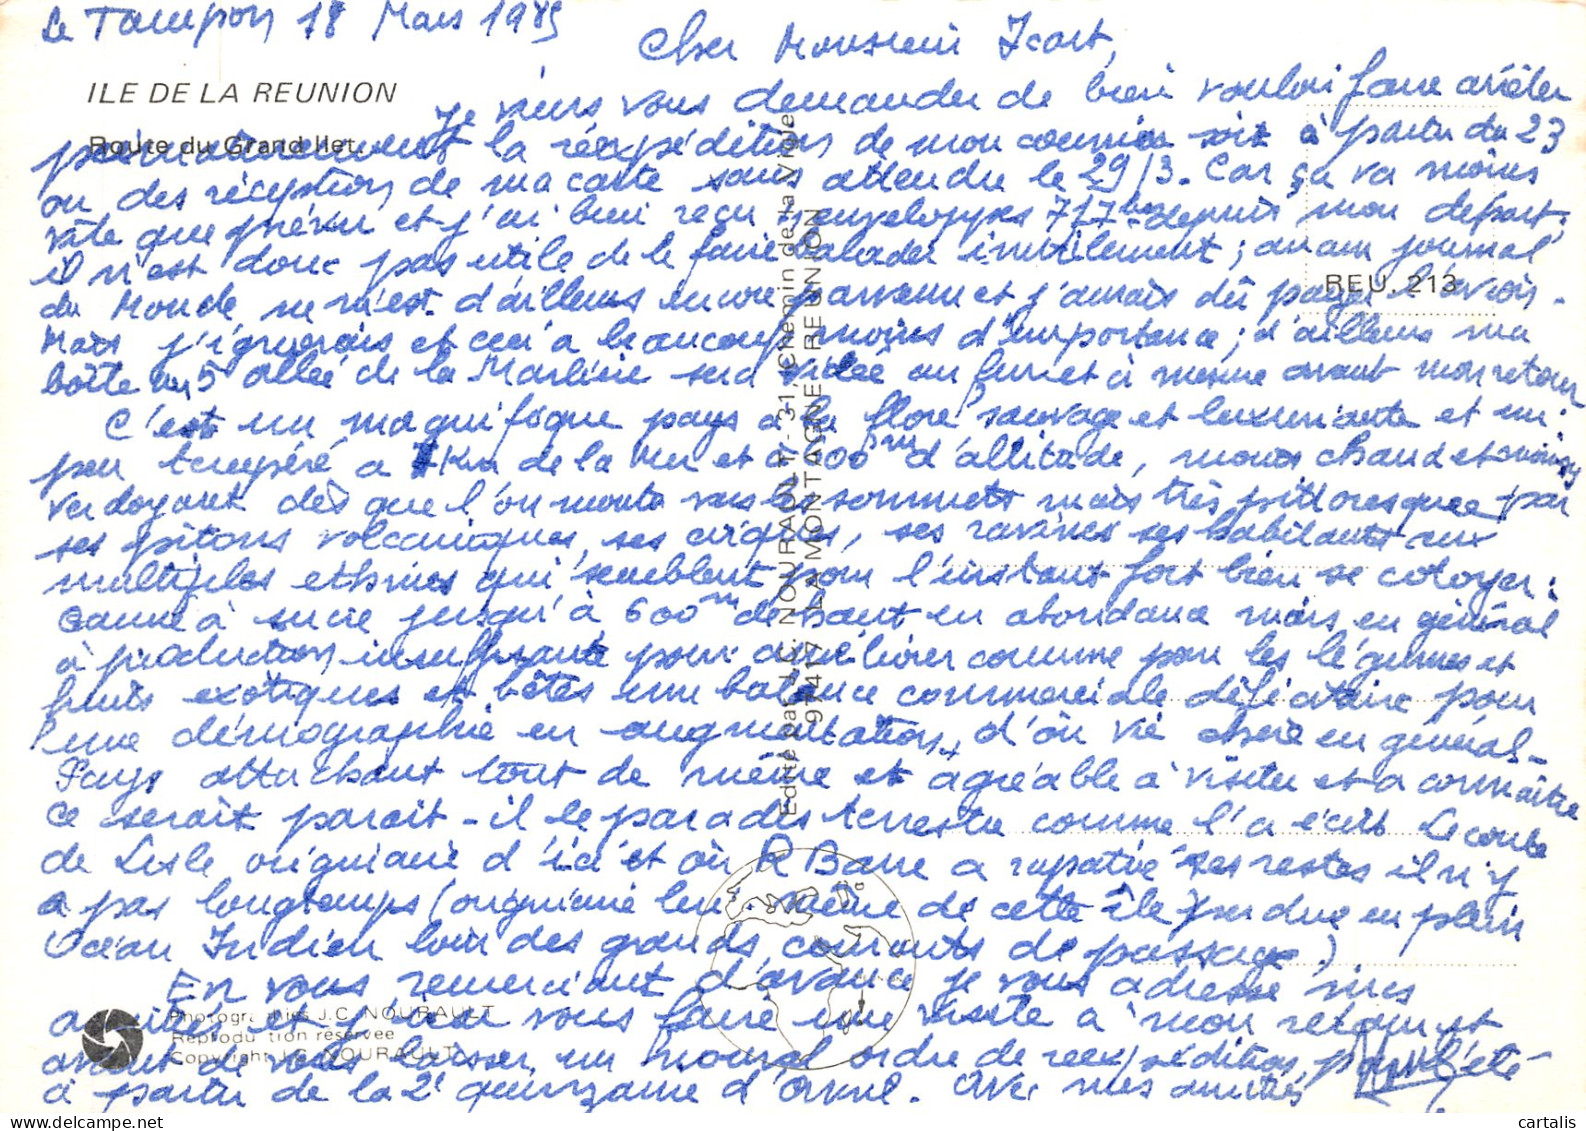 Le Tampon 18 Mars 1985
Cher Monsieur Icart,
ILE DE LA REUNION
Route du Grand Ilet
Je viens vous demander de bien vouloir faire arrêter
prématurément la réexpédition de mon courrier soit à partir du 23
ou dès réception de ma carte sans attendre le 29/3. Car ça va moins
vite que prévu et j'ai bien reçu enveloppes depuis mon départ.
il n'est donc pas utile de le faire balader inutilement ; aucun journal
du Monde ne m'est d'ailleurs encore parvenu et j'aurais dû payer l'avion.
REU. 213
Mais j'ignorais et ceci a beaucoup moins d'importance ; d'ailleurs ma
boîte au 5 allée de la sera vidée au fur et à mesure avant mon retour
C'est un magnifique pays à la flore sauvage et luxuriante et un
peu tempéré à 7 Km de la Mer et à 600 m d'altitude, moins chaud et
verdoyant dès que l'on monte vers les sommets mais très pittoresque par
ses pitons volcaniques, ses cirques, ses ravines ses habitants aux
multiples ethnies qui semblent pour l'instant fort bien se cotoyer ;
Canne à sucre jusqu'à 600 m de haut en abondance mais en général
à production insuffisante pour améliorer comme pour les légumes et
fruits exotiques et bêtes une balance commerciale déficitaire pour
une démographie en augmentation, d'où vie chère en général -
Pays attachant tout de même et agréable à visiter et à connaître
ce serait paraît-il le paradis terrestre comme l'a écrit Leconte
de Lisle originaire d'ici et où R Barre a rapatrié ses restes il n'y
a pas longtemps (originaire lui-même de cette île perdue en plein
Océan Indien loin des grands courants de passage)
En vous remerciant d'avance je vous adresse mes
amitiés et vous faire une visite à mon retour et
avant de vous laisser un nouvel ordre de réexpédition pour l'été -
à partir de la 2e quinzaine d'Avril. Avec mes amitiés
Photographies J.C. NOURAULT
Reproduction réservée
Copyright J.C. NOURAULT
Edité par J.C. NOURAULT - 31, Chemin de la Vigie
97417 LA MONTAGNE / REUNION
cartalis